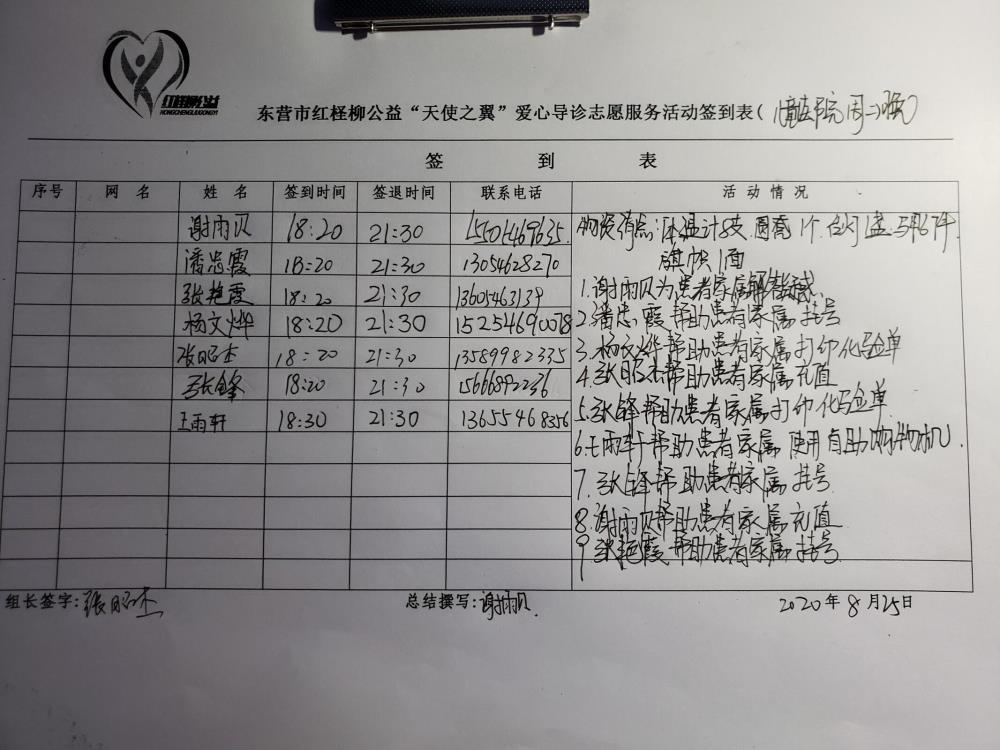 红柽柳公益
HONGCHENGLIUGONGYI
东营市红柽柳公益“天使之翼”爱心导诊志愿服务活动签到表(院周二晚)
签 到 表
序号 网 名 姓 名 签到时间 签退时间 联系电话 活 动 情 况
谢雨贝 18:20 21:30 15501469635
潘忠霞 18:20 21:30 13054628270
张艳霞 18:20 21:30 13605463139
杨文烨 18:20 21:30 15254690078
张昭杰 18:20 21:30 13589982335
张锋 18:20 21:30 15666892236
王雨轩 18:30 21:30 13655468356
物资清点:体温计2支. 1个. 台灯1盏.马甲67件.
旗帜1面
1.谢雨贝为患者家属解答疑惑.
2.潘忠霞帮助患者家属挂号
3.杨文烨帮助患者家属打印化验单
4.张昭杰帮助患者家属充值
5.张锋帮助患者家属打印化验单
6.王雨轩帮助患者家属使用自助购物机.
7.张锋帮助患者家属挂号
8.谢雨贝帮助患者家属充值
9 张艳霞帮助患者家属挂号
组长签字:张昭杰 总结撰写:谢雨贝 2020年8月25日